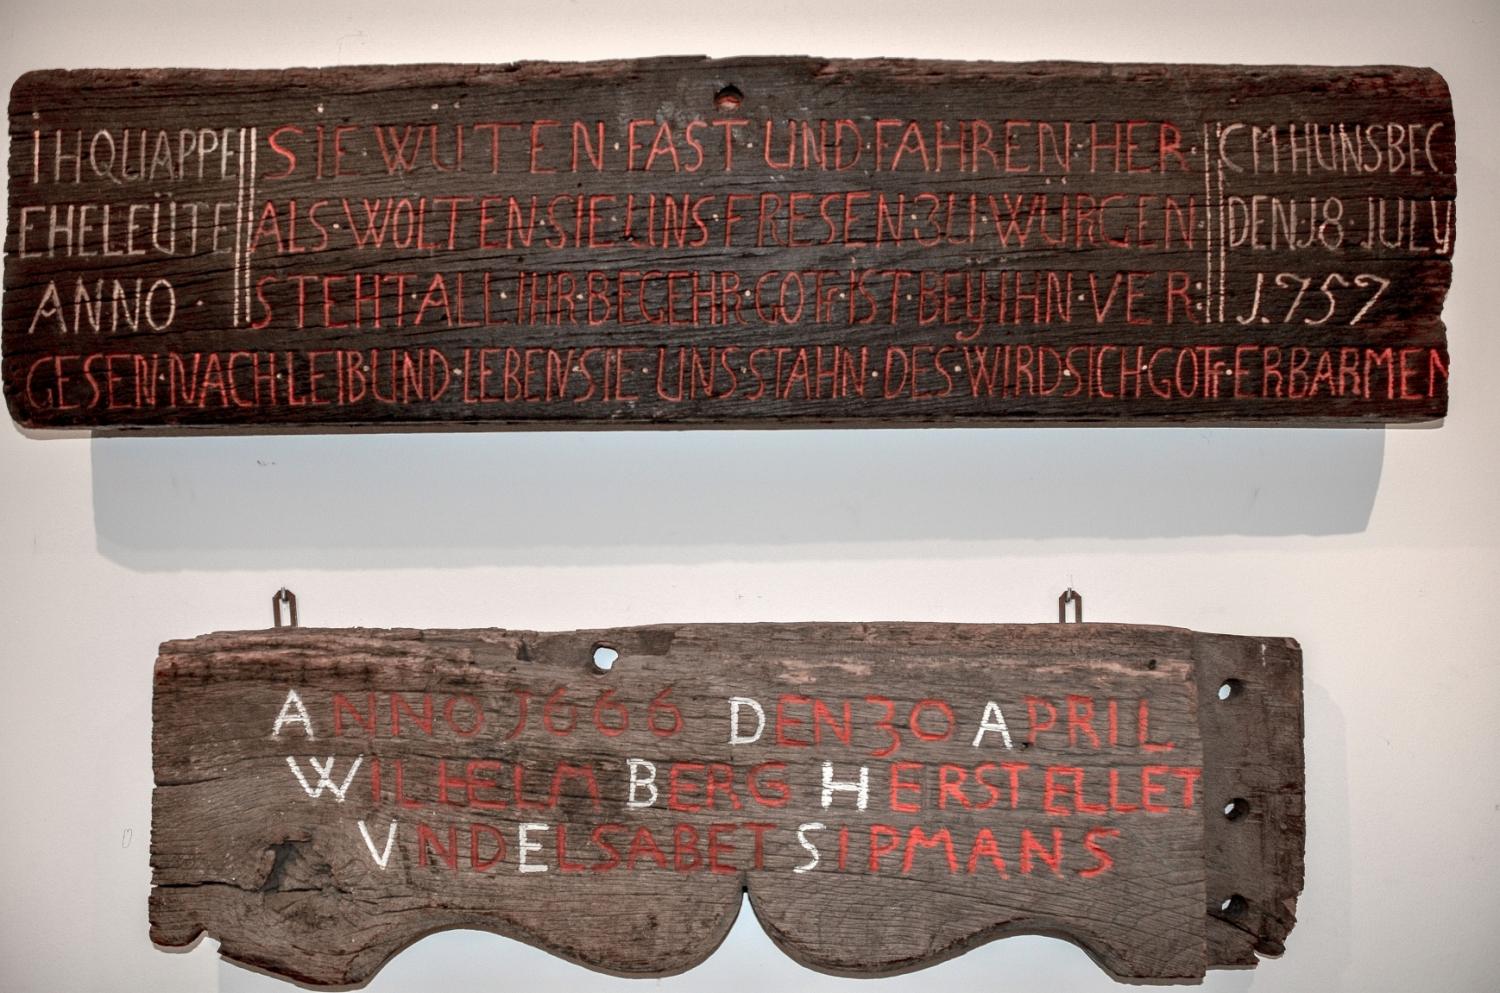 IHQUAPPE SIE WUTEN·FAST·UND·FAHREN·HER· CM·HUNSBEC
EHELEÜTE ALS·WOLTEN·SIE·UNS FRESEN·ZU·WÜRGEN DEN J8·JULY
ANNO · STEHT·ALL·IHR BEGEHR·GOTT·IST·BEY·IHN·VER: J.757
GESEN·NACH·LEIB UND·LEBEN SIE UNS STAHN·DES·WIRD SICH GOTT·ERBARMEN
ANNO J666 DEN 30 APRIL
WILHELM BERG HERSTELLET
VND ELSABET SIPMANS